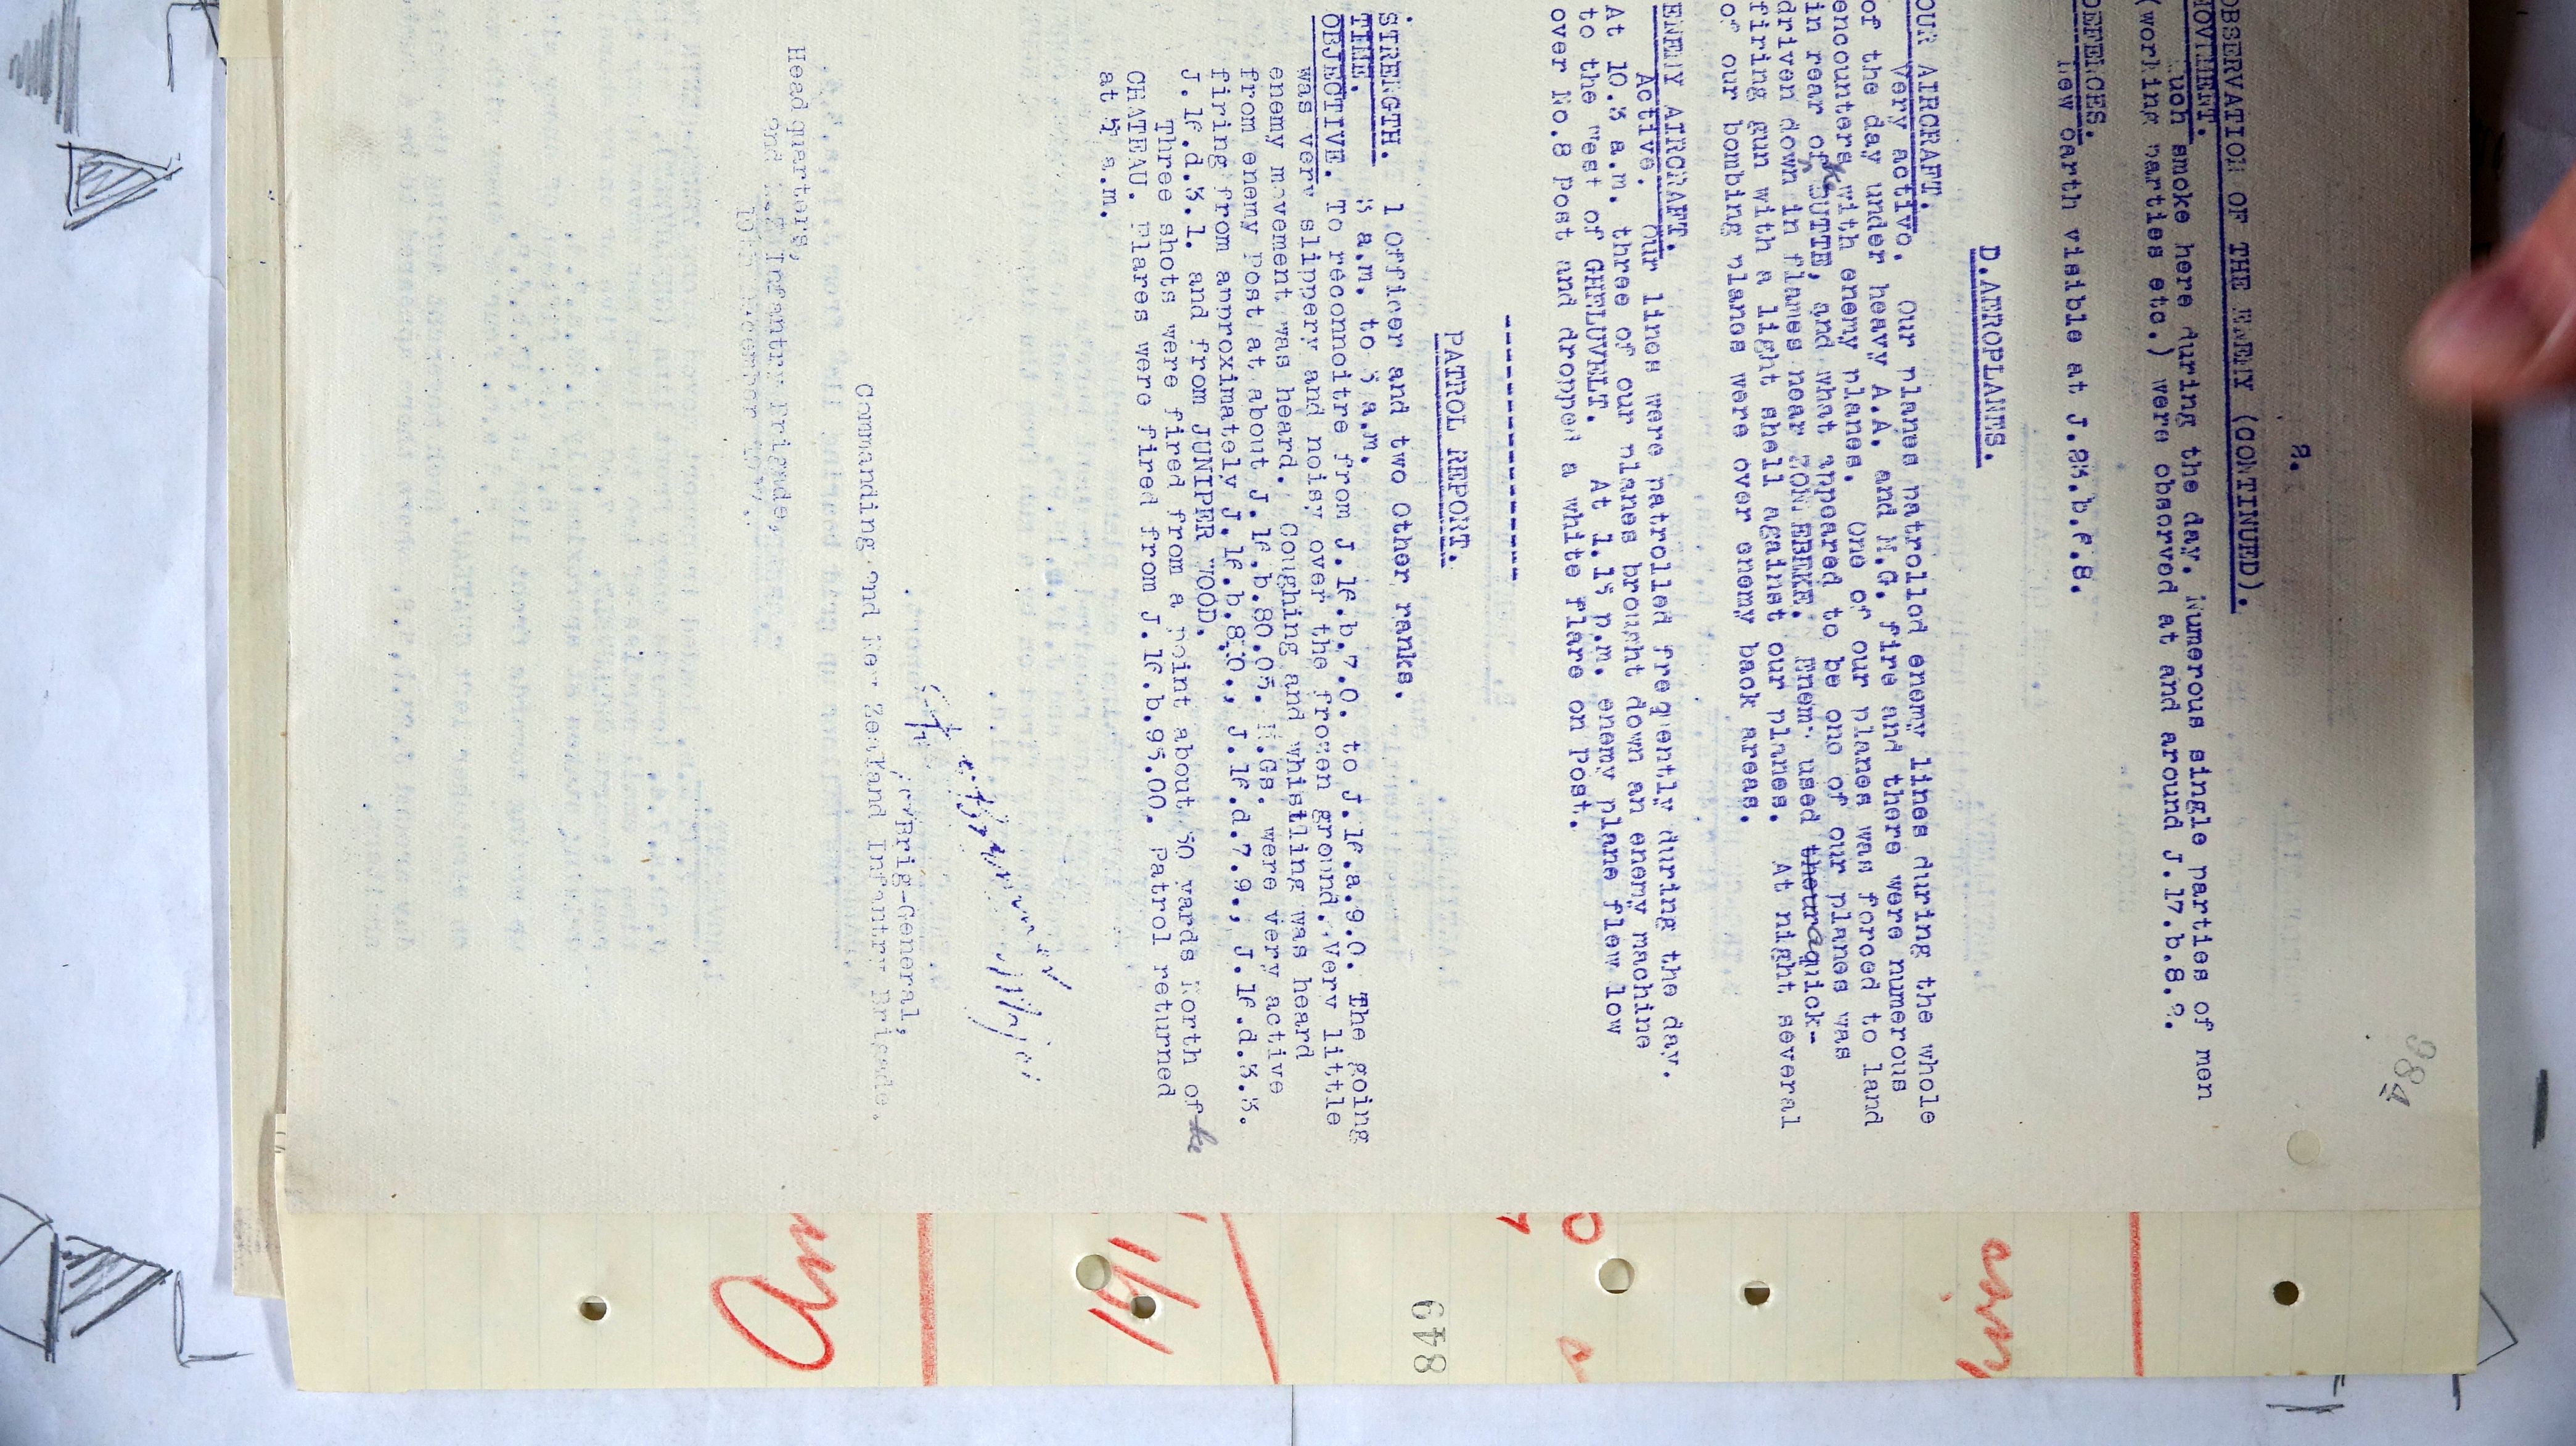 984
2.
OBSERVATION OF THE ENEMY (CONTINUED).
MOVEMENT.
Much smoke here during the day. Numerous single parties of men
(working parties etc.) were observed at and around J.17.b.8.2.
DEFENCES.
New earth visible at J.23.b.6.8.
D. AEROPLANES.
OUR AIRCRAFT.
Very active. Our planes patrolled enemy lines during the whole
of the day under heavy A.A. and M.G. fire and there were numerous
encounters with enemy planes. One of our planes was forced to land
in rear of the BUTTE, and what appeared to be one of our planes was
driven down in flames near ZONNEBEKE. Enemy used a quick-
firing gun with a light shell against our planes. At night several
of our bombing planes were over enemy back areas.
ENEMY AIRCRAFT.
Active. Our lines were patrolled frequently during the day.
At 10.3 a.m. three of our planes brought down an enemy machine
to the West of GHELUVELT. At 1.15 p.m. enemy plane flew low
over No.8 Post and dropped a white flare on Post.
---------------------
PATROL REPORT.
STRENGTH. 1 officer and two Other ranks.
TIME. 3 a.m. to 5 a.m.
OBJECTIVE. To reconnoitre from J.16.b.7.0. to J.16.a.9.0. The going
was very slippery and noisy over the frozen ground. Very little
enemy movement was heard. Coughing and whistling was heard
from enemy Post at about J.16.b.80.05. M.Gs. were very active
firing from approximately J.16.b.8.0., J.16.d.7.9., J.16.d.3.3.
J.16.d.3.1. and from JUNIPER WOOD.
Three shots were fired from a point about 30 yards North of the
CHATEAU. Flares were fired from J.16.b.95.00. Patrol returned
at 5 a.m.
Brig-General,
Commanding 2nd New Zealand Infantry Brigade.
Headquarters,
2nd N.Z. Infantry Brigade,
December
An
191
849